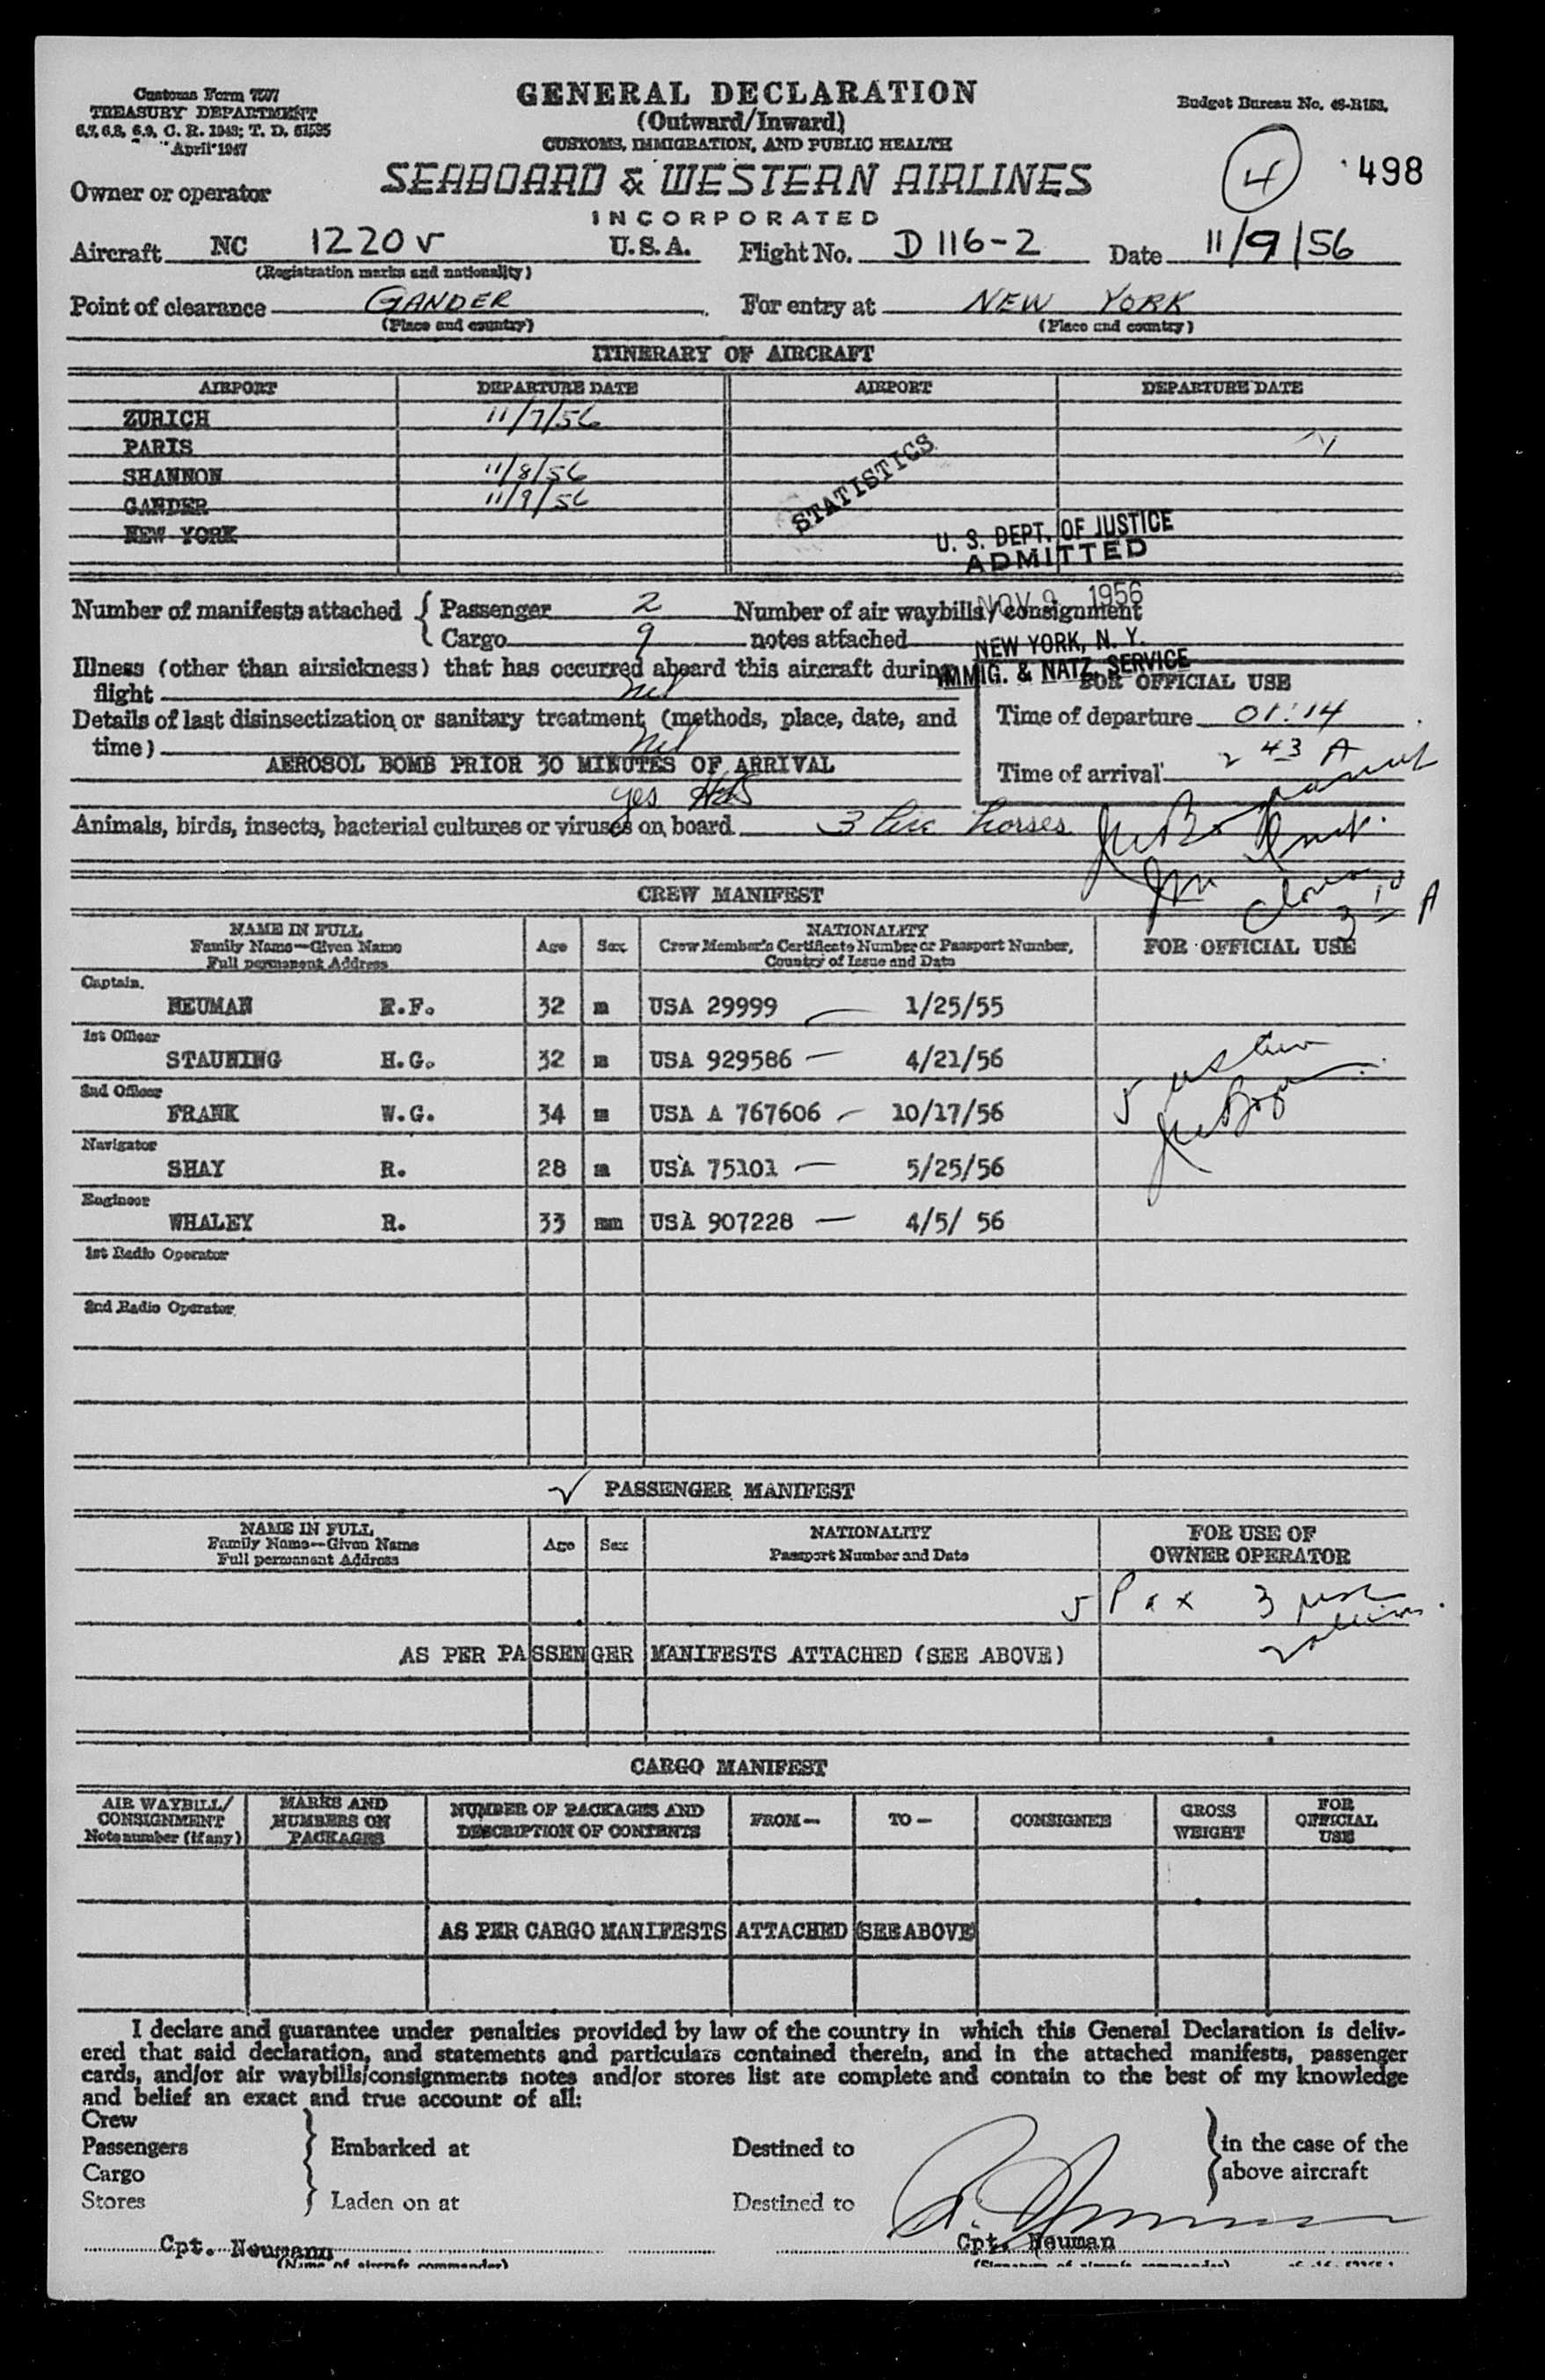 Customs Form 7507
TREASURY DEPARTMENT
6.7, 6.8, 6.9, C. R. 1943; T. D. 51595
April 1947
GENERAL DECLARATION
(Outward/Inward)
CUSTOMS, IMMIGRATION, AND PUBLIC HEALTH
Budget Bureau No. 48-R153.
4 498
Owner or operator SEABOARD & WESTERN AIRLINES
INCORPORATED
Aircraft NC 1220V U.S.A. Flight No. D 116-2 Date 11/9/56
(Registration marks and nationality)
Point of clearance GANDER For entry at NEW YORK
(Place and country) (Place and country)
ITINERARY OF AIRCRAFT
AIRPORT DEPARTURE DATE AIRPORT DEPARTURE DATE
ZURICH 11/7/56
PARIS
SHANNON 11/8/56
GANDER 11/9/56
NEW YORK
STATISTICS
U. S. DEPT. OF JUSTICE
ADMITTED
NOV 9 1956
NEW YORK, N. Y.
IMMIG. & NATZ. SERVICE
Number of manifests attached { Passenger 2 Number of air waybills/consignment
Cargo 9 notes attached
Illness (other than airsickness) that has occurred aboard this aircraft during
flight nil
FOR OFFICIAL USE
Details of last disinsectization or sanitary treatment (methods, place, date, and
time) nil
Time of departure 01:14
AEROSOL BOMB PRIOR 30 MINUTES OF ARRIVAL
Time of arrival 2 43 A
yes
Animals, birds, insects, bacterial cultures or viruses on board 3 live horses
CREW MANIFEST
NAME IN FULL
Family Name—Given Name
Full permanent Address
Age Sex
NATIONALITY
Crew Member's Certificate Number or Passport Number,
Country of Issue and Date
FOR OFFICIAL USE
Captain.
NEUMAN R.F. 32 m USA 29999 — 1/25/55
1st Officer
STAUNING H.G. 32 m USA 929586 — 4/21/56
2nd Officer
FRANK W.G. 34 m USA A 767606 — 10/17/56
Navigator
SHAY R. 28 m USA 75101 — 5/25/56
Engineer
WHALEY R. 33 mm USA 907228 — 4/5/ 56
1st Radio Operator
2nd Radio Operator
PASSENGER MANIFEST
NAME IN FULL
Family Name—Given Name
Full permanent Address
Age Sex
NATIONALITY
Passport Number and Date
FOR USE OF
OWNER OPERATOR
5 Pax 3
AS PER PASSENGER MANIFESTS ATTACHED (SEE ABOVE)
CARGO MANIFEST
AIR WAYBILL/
CONSIGNMENT
Note number (if any)
MARKS AND
NUMBERS ON
PACKAGES
NUMBER OF PACKAGES AND
DESCRIPTION OF CONTENTS
FROM— TO— CONSIGNEE
GROSS
WEIGHT
FOR
OFFICIAL
USE
AS PER CARGO MANIFESTS ATTACHED (SEE ABOVE)
I declare and guarantee under penalties provided by law of the country in which this General Declaration is deliv-
ered that said declaration, and statements and particulars contained therein, and in the attached manifests, passenger
cards, and/or air waybills/consignments notes and/or stores list are complete and contain to the best of my knowledge
and belief an exact and true account of all:
Crew
Passengers Embarked at Destined to in the case of the
Cargo above aircraft
Stores Laden on at Destined to
Cpt. Neumann Cpt. Neuman
(Name of aircraft commander) (Signature of aircraft commander)